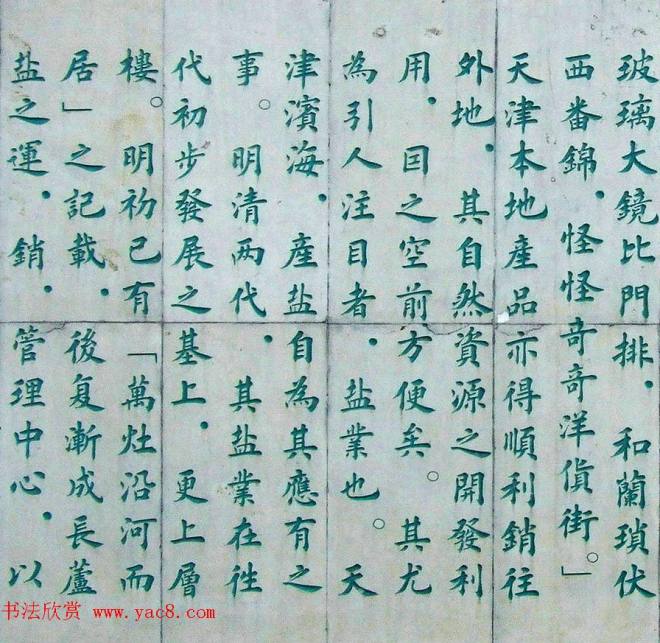 玻璃大鏡比門排．和蘭瑣伏
西番錦．怪怪竒竒洋貨街。」
天津本地産品亦得順利銷往
外地．其自然資源之開發利
用．囙之空前方便矣。其尤
為引人注目者．盐業也。天
津濱海．産盐自為其應有之
事。明清两代．其盐業在往
代初步發展之基上．更上層
樓。明初已有「萬灶沿河而
居」之記載．後复漸成長蘆
盐之運．銷．管理中心．以
书法欣赏 www.yac8.com